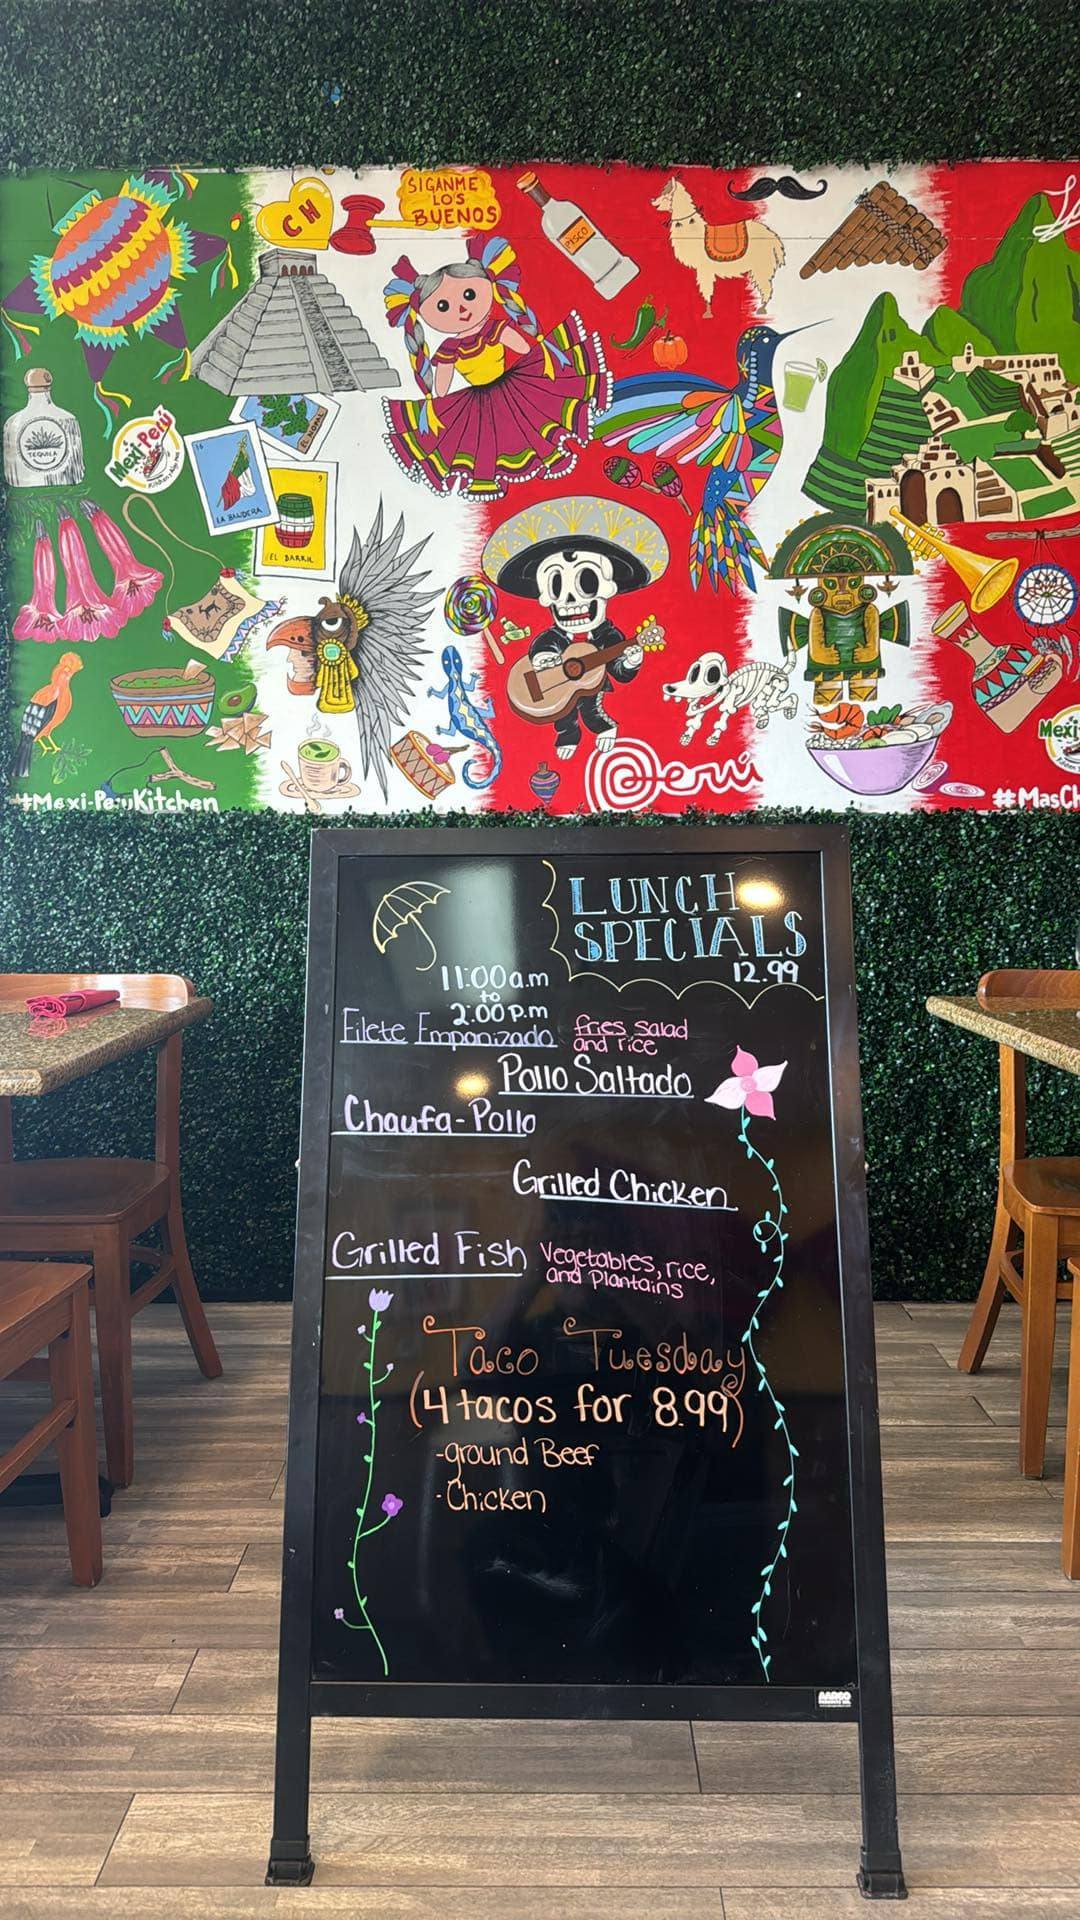 SIGANME
LOS
BUENOS
CH
PISCO
TEQUILA
Mexi-Perú
16
LA BANDERA
EL NOPAL
9
EL BARRIL
Perú
Mexi
#Mexi-PeruKitchen
#MasCh
LUNCH
SPECIALS
12.99
11:00a.m
to
2:00p.m
Filete Empanizado
fries salad
and rice
Pollo Saltado
Chaufa-Pollo
Grilled Chicken
Grilled Fish
Vegetables, rice,
and Plantains
Taco Tuesday
(4 tacos for 8.99)
-ground Beef
-Chicken
AARCO